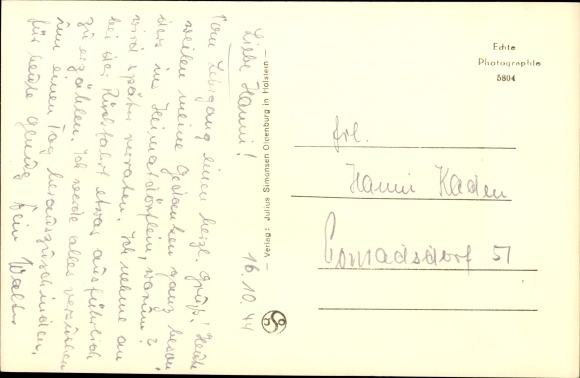 Liebe Hanni! 16.10.44
Vom Lehrgang einen herzl. Gruß! Heute
weilen meine Gedanken ganz beson.
ders im Heimatdörflein, warum?
wird später verraten. Ich nehme an
bei der Rückfahrt etwas ausführlich
zu erzählen. Ich werde alles versuchen
um einen Tag herauszuschinden.
für heute genug Dein Walter
– Verlag: Julius Simonsen Oldenburg in Holstein –
Echte
Photographie
5804
Frl.
Hanni Kaden
Conradsdorf 51